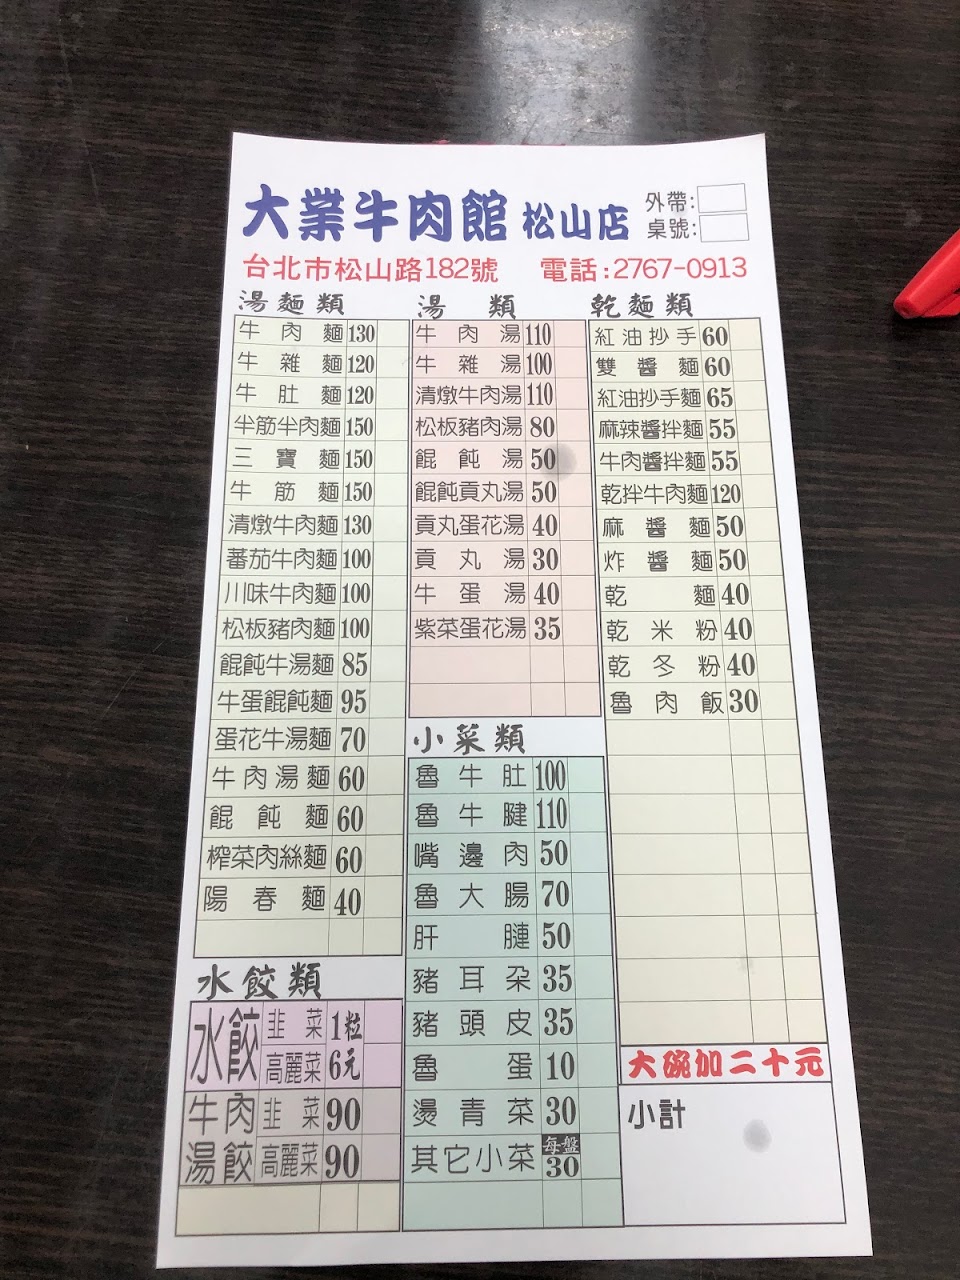 大業牛肉館 松山店
外帶:
桌號:
台北市松山路182號 電話:2767-0913
湯麵類
牛肉麵 130
牛雜麵 120
牛肚麵 120
半筋半肉麵 150
三寶麵 150
牛筋麵 150
清燉牛肉麵 130
蕃茄牛肉麵 100
川味牛肉麵 100
松板豬肉麵 100
餛飩牛湯麵 85
牛蛋餛飩麵 95
蛋花牛湯麵 70
牛肉湯麵 60
餛飩麵 60
榨菜肉絲麵 60
陽春麵 40
水餃類
水餃 韭菜 高麗菜 1粒 6元
牛肉湯餃 韭菜 90
高麗菜 90
湯類
牛肉湯 110
牛雜湯 100
清燉牛肉湯 110
松板豬肉湯 80
餛飩湯 50
餛飩貢丸湯 50
貢丸蛋花湯 40
貢丸湯 30
牛蛋湯 40
紫菜蛋花湯 35
小菜類
魯牛肚 100
魯牛腱 110
嘴邊肉 50
魯大腸 70
肝膁 50
豬耳朵 35
豬頭皮 35
魯蛋 10
燙青菜 30
其它小菜 每盤30
乾麵類
紅油抄手 60
雙醬麵 60
紅油抄手麵 65
麻辣醬拌麵 55
牛肉醬拌麵 55
乾拌牛肉麵 120
麻醬麵 50
炸醬麵 50
乾麵 40
乾米粉 40
乾冬粉 40
魯肉飯 30
大碗加二十元
小計